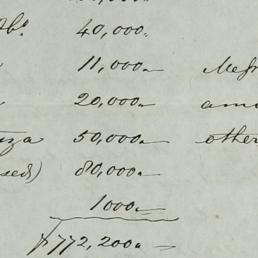 40,000.
11,000.
20,000. amo
50,000. other
sed) 80,000.
1000.
$772,200.